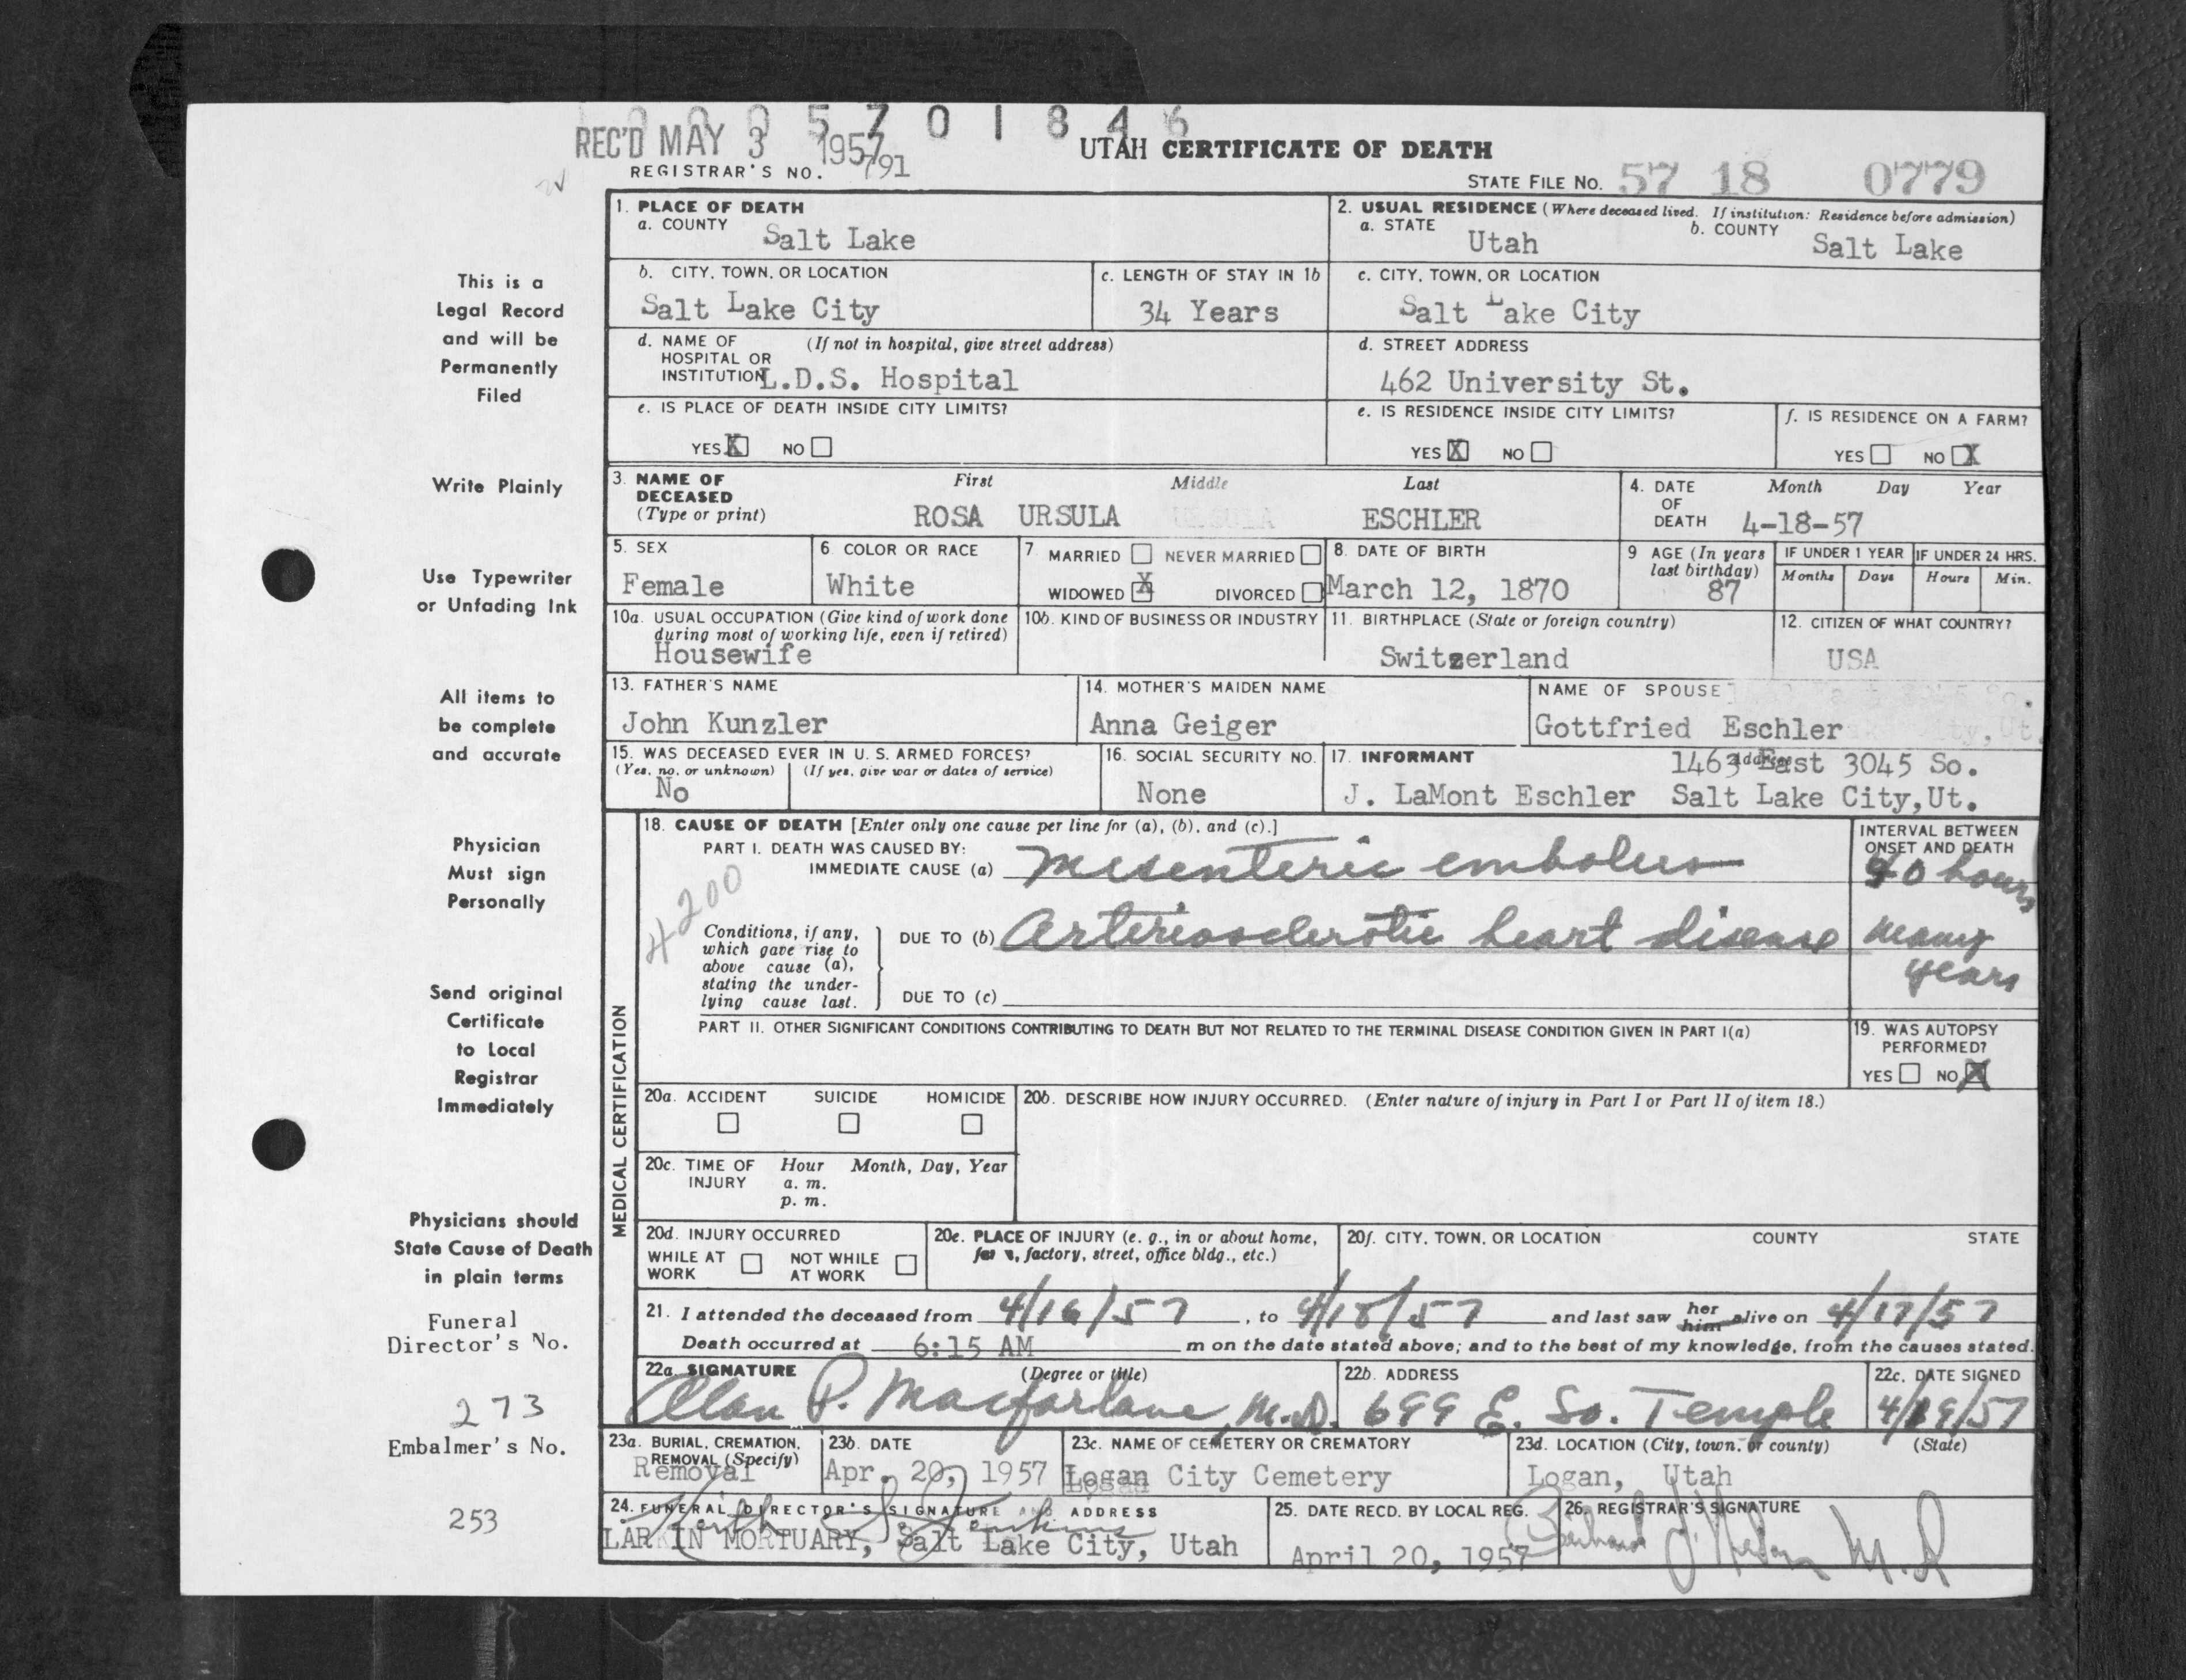 0005701846
REC'D MAY 3 1957
UTAH CERTIFICATE OF DEATH
REGISTRAR'S NO. 791
STATE FILE NO. 57 18 0779
This is a
Legal Record
and will be
Permanently
Filed
Write Plainly
Use Typewriter
or Unfading Ink
All items to
be complete
and accurate
Physician
Must sign
Personally
Send original
Certificate
to Local
Registrar
Immediately
Physicians should
State Cause of Death
in plain terms
Funeral
Director's No.
273
Embalmer's No.
253
1. PLACE OF DEATH
a. COUNTY Salt Lake
2. USUAL RESIDENCE (Where deceased lived. If institution: Residence before admission)
a. STATE Utah b. COUNTY Salt Lake
b. CITY, TOWN, OR LOCATION
Salt Lake City
c. LENGTH OF STAY IN 1b
34 Years
c. CITY, TOWN, OR LOCATION
Salt Lake City
d. NAME OF (If not in hospital, give street address)
HOSPITAL OR
INSTITUTION L.D.S. Hospital
d. STREET ADDRESS
462 University St.
e. IS PLACE OF DEATH INSIDE CITY LIMITS?
YES X NO
e. IS RESIDENCE INSIDE CITY LIMITS?
YES X NO
f. IS RESIDENCE ON A FARM?
YES NO X
3. NAME OF DECEASED (Type or print)
First Middle Last
ROSA URSULA URSULA ESCHLER
4. DATE OF DEATH Month Day Year
4-18-57
5. SEX
Female
6. COLOR OR RACE
White
7. MARRIED NEVER MARRIED
WIDOWED X DIVORCED
8. DATE OF BIRTH
March 12, 1870
9. AGE (In years last birthday)
87
IF UNDER 1 YEAR IF UNDER 24 HRS.
Months Days Hours Min.
10a. USUAL OCCUPATION (Give kind of work done
during most of working life, even if retired)
Housewife
10b. KIND OF BUSINESS OR INDUSTRY
11. BIRTHPLACE (State or foreign country)
Switzerland
12. CITIZEN OF WHAT COUNTRY?
USA
13. FATHER'S NAME
John Kunzler
14. MOTHER'S MAIDEN NAME
Anna Geiger
NAME OF SPOUSE
Gottfried Eschler
15. WAS DECEASED EVER IN U. S. ARMED FORCES?
(Yes, no, or unknown) (If yes, give war or dates of service)
No
16. SOCIAL SECURITY NO.
None
17. INFORMANT Address
1463 East 3045 So.
J. LaMont Eschler Salt Lake City,Ut.
MEDICAL CERTIFICATION
18. CAUSE OF DEATH [Enter only one cause per line for (a), (b), and (c).]
PART I. DEATH WAS CAUSED BY:
IMMEDIATE CAUSE (a) Mesenteric embolus
INTERVAL BETWEEN
ONSET AND DEATH
40 hours
4200
Conditions, if any,
which gave rise to
above cause (a),
stating the under-
lying cause last.
DUE TO (b) Arteriosclerotic heart disease
many
years
DUE TO (c)
PART II. OTHER SIGNIFICANT CONDITIONS CONTRIBUTING TO DEATH BUT NOT RELATED TO THE TERMINAL DISEASE CONDITION GIVEN IN PART I(a)
19. WAS AUTOPSY
PERFORMED?
YES NO X
20a. ACCIDENT SUICIDE HOMICIDE
20b. DESCRIBE HOW INJURY OCCURRED. (Enter nature of injury in Part I or Part II of item 18.)
20c. TIME OF INJURY Hour Month, Day, Year
a. m.
p. m.
20d. INJURY OCCURRED
WHILE AT WORK NOT WHILE AT WORK
20e. PLACE OF INJURY (e. g., in or about home,
factory, street, office bldg., etc.)
20f. CITY, TOWN, OR LOCATION COUNTY STATE
21. I attended the deceased from 4/16/57, to 4/18/57 and last saw her him alive on 4/17/57
Death occurred at 6:15 AM m on the date stated above; and to the best of my knowledge, from the causes stated.
22a. SIGNATURE (Degree or title)
Alan P. Macfarlane, M.D.
22b. ADDRESS
699 E. So. Temple
22c. DATE SIGNED
4/19/57
23a. BURIAL, CREMATION,
REMOVAL (Specify)
Removal
23b. DATE
Apr. 20, 1957
23c. NAME OF CEMETERY OR CREMATORY
Logan City Cemetery
23d. LOCATION (City, town, or county) (State)
Logan, Utah
24. FUNERAL DIRECTOR'S SIGNATURE AND ADDRESS
Keith
LARKIN MORTUARY, Salt Lake City, Utah
25. DATE RECD. BY LOCAL REG.
April 20, 1957
26. REGISTRAR'S SIGNATURE
M.D